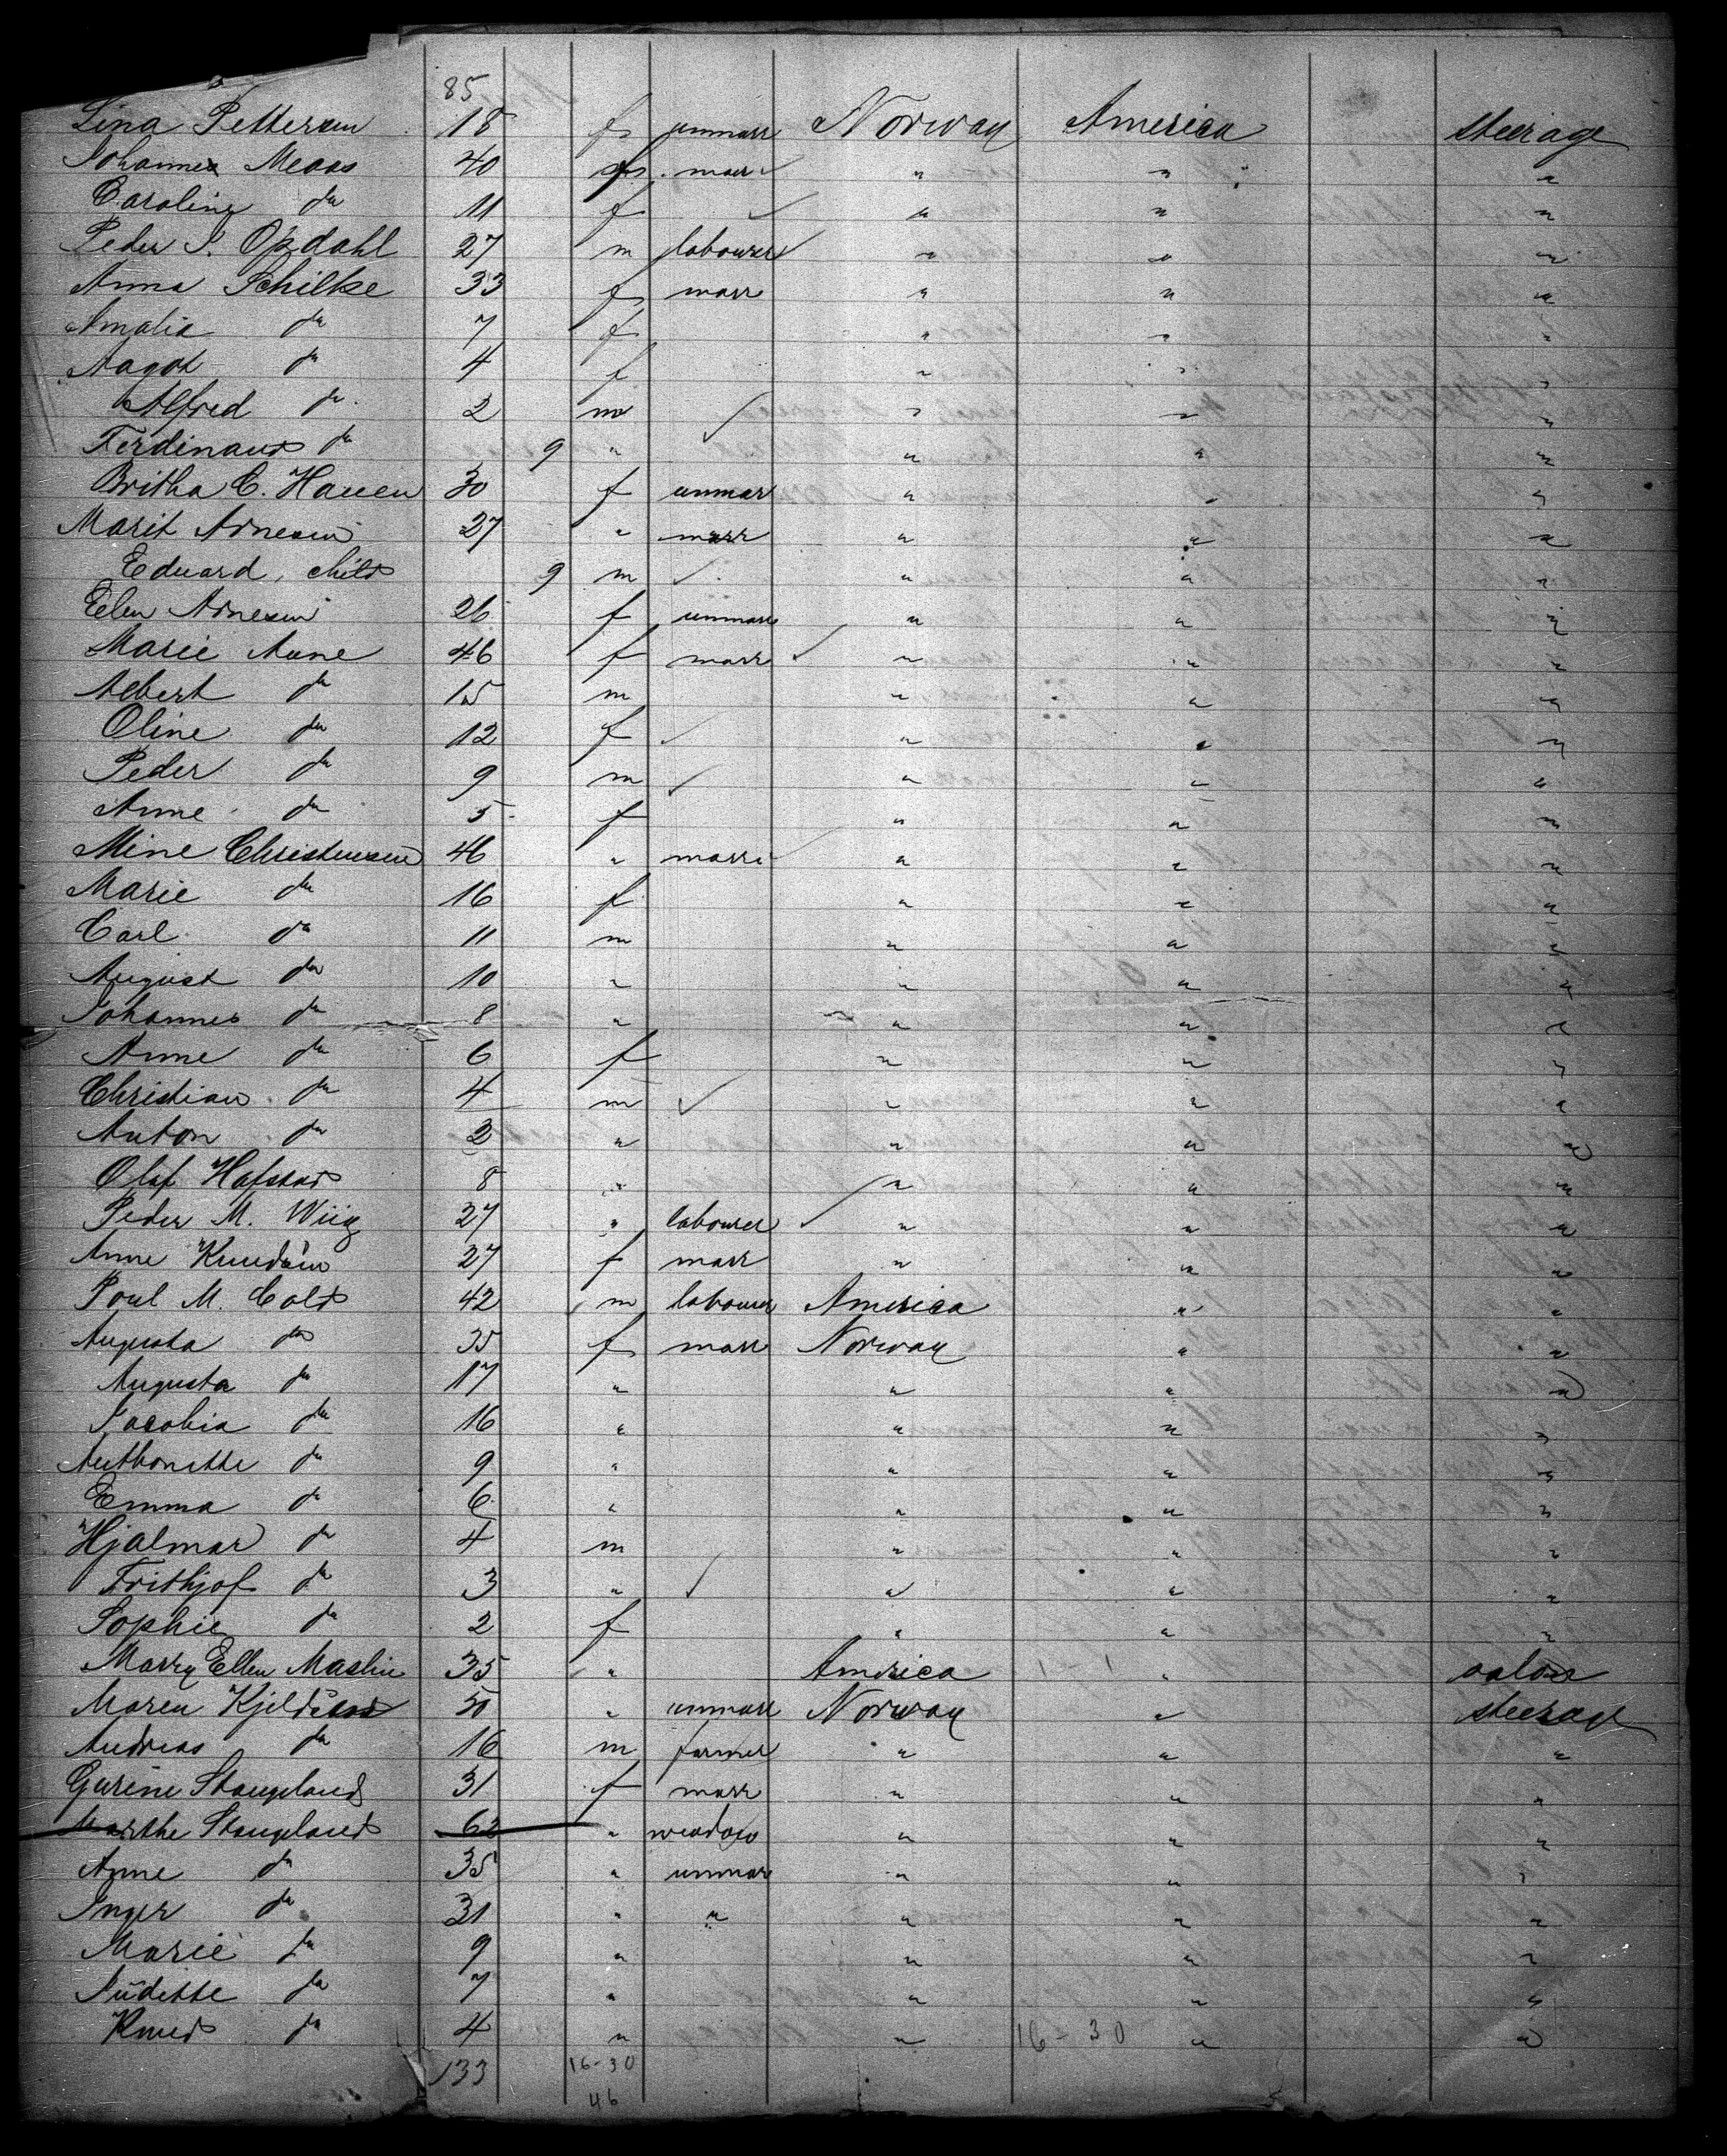 85
Lina Pettersen 18 f unmarr Norway America steerage
Johannes Meaas 40 m marr " " "
Caroline do 11 f " " "
Peder P. Opdahl 27 m labourer " " "
Anna Schilke 33 f marr " " "
Amalia do 7 f " " "
Aagot do 4 f " " "
Alfred do 2 m " " "
Ferdinand do 9 " " " "
Britha C. Hauen 30 f unmar " " "
Marit Arnesen 27 " marr " " "
Eduard, child 9 m " " "
Elen Arnesen 26 f unmarr " " "
Marie Aune 46 f marr " " "
Albert do 15 m " " "
Oline do 12 f " " "
Peder do 9 m " " "
Anne do 5 f " " "
Mine Christensen 46 " marr " " "
Marie do 16 f " " "
Carl do 11 m " " "
August do 10 " " " "
Johannes do 8 " " " "
Anne do 6 f " " "
Christian do 4 m " " "
Anton do 2 " " " "
Olaf Hafstad 8 " " " "
Peder M. Wiig 27 " labourer " " "
Anne Knudsen 27 f marr " " "
Poul M. Cold 42 m labourer America " "
Augusta do 35 f marr Norway " "
Augusta do 17 " " " "
Jacobia do 16 " " " "
Anthonette do 9 " " " "
Emma do 6 " " " "
Hjalmar do 4 m " " "
Frithjof do 3 " " " "
Sophie do 2 f " " "
Marry Ellen Maslin 35 " America " salon
Maren Kjeldsen 50 " unmarr Norway " steerage
Andreas do 16 m farmer " " "
Gurine Stangeland 31 f marr " " "
Marthe Stangeland 62 " weadow " " "
Anne do 35 " unmar " " "
Inger do 31 " " " " "
Marie do 9 " " " "
Judette do 7 " " " "
Knud do 4 " " 16-30 " "
133 16-30
46